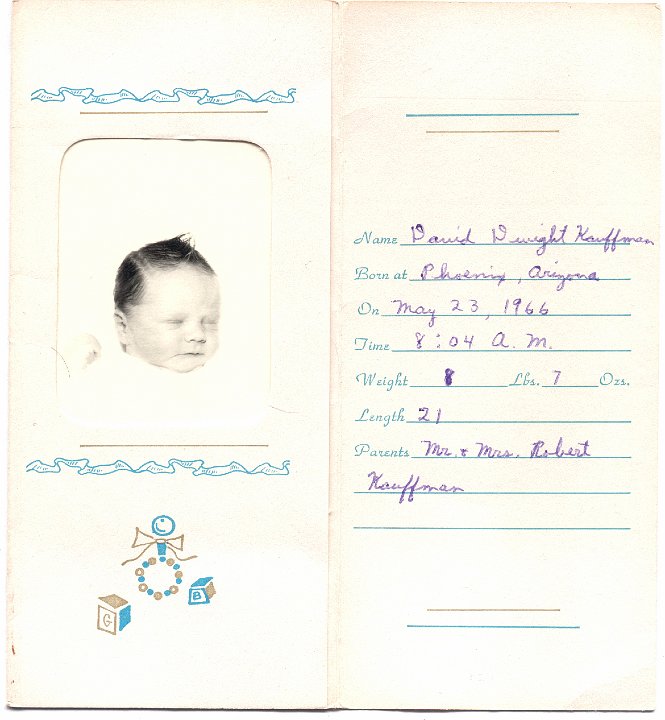 Name David Dwight Kauffman
Born at Phoenix, Arizona
On May 23, 1966
Time 8:04 A.M.
Weight 8 Lbs. 7 Ozs.
Length 21
Parents Mr. & Mrs. Robert
Kauffman
G
B